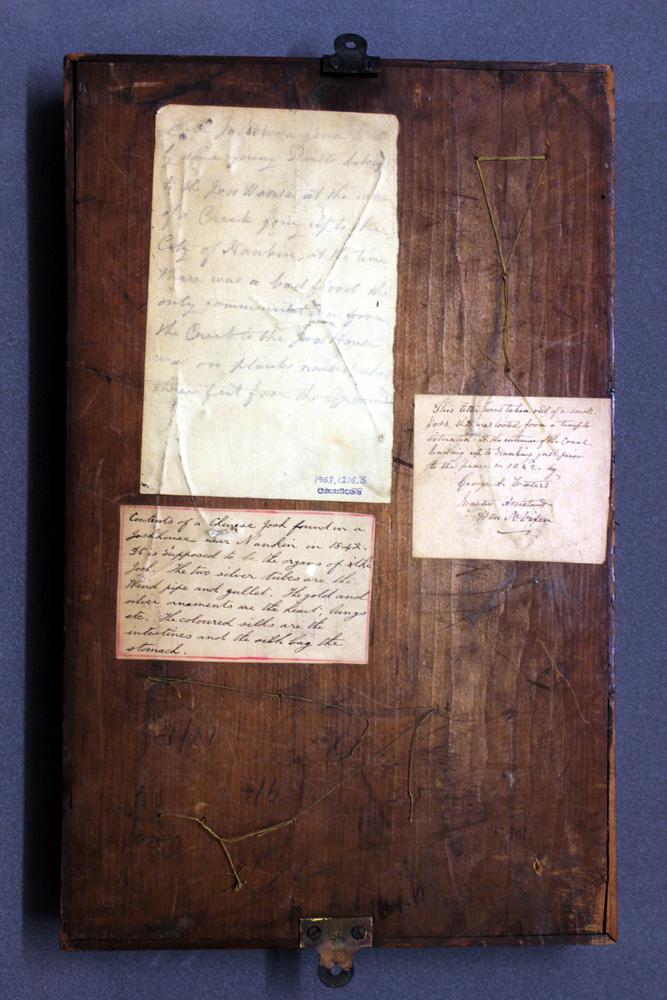 by some young
to the Joss House at the
of a Creek going up to the
City of Nankin, at the time
there was a bad flood the
only communication from
the Creek to the Joss House
was on planks raised
three feet from the Ground
1983,1216.5
Contents of a Chinese Josh found in a
Joshhouse near Nankin in 1842.
It is supposed to be the organs of the
Josh. The two silver tubes are the
Wind pipe and gullet. The gold and
silver ornaments are the heart, lungs
etc. The coloured silks are the
intestines and the silk bag the
stomach.
This letter was taken out of a small
Joss, & was looted from a temple
situated at the entrance of the Canal
leading up to Nanking just prior
to the peace in 1842. by
George
Master Assistant